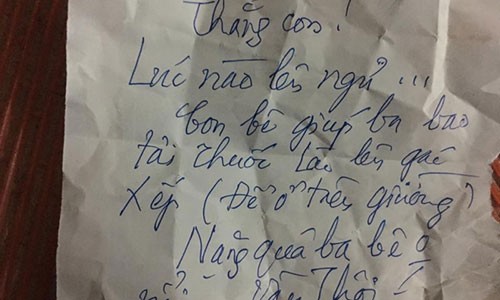 Thằng con!
Lúc nào lên ngủ ...
Con bê giúp ba bao
tải thuốc lào lên gác
xếp (Để ở trên giường)
Nặng quá ba bê o
nổi